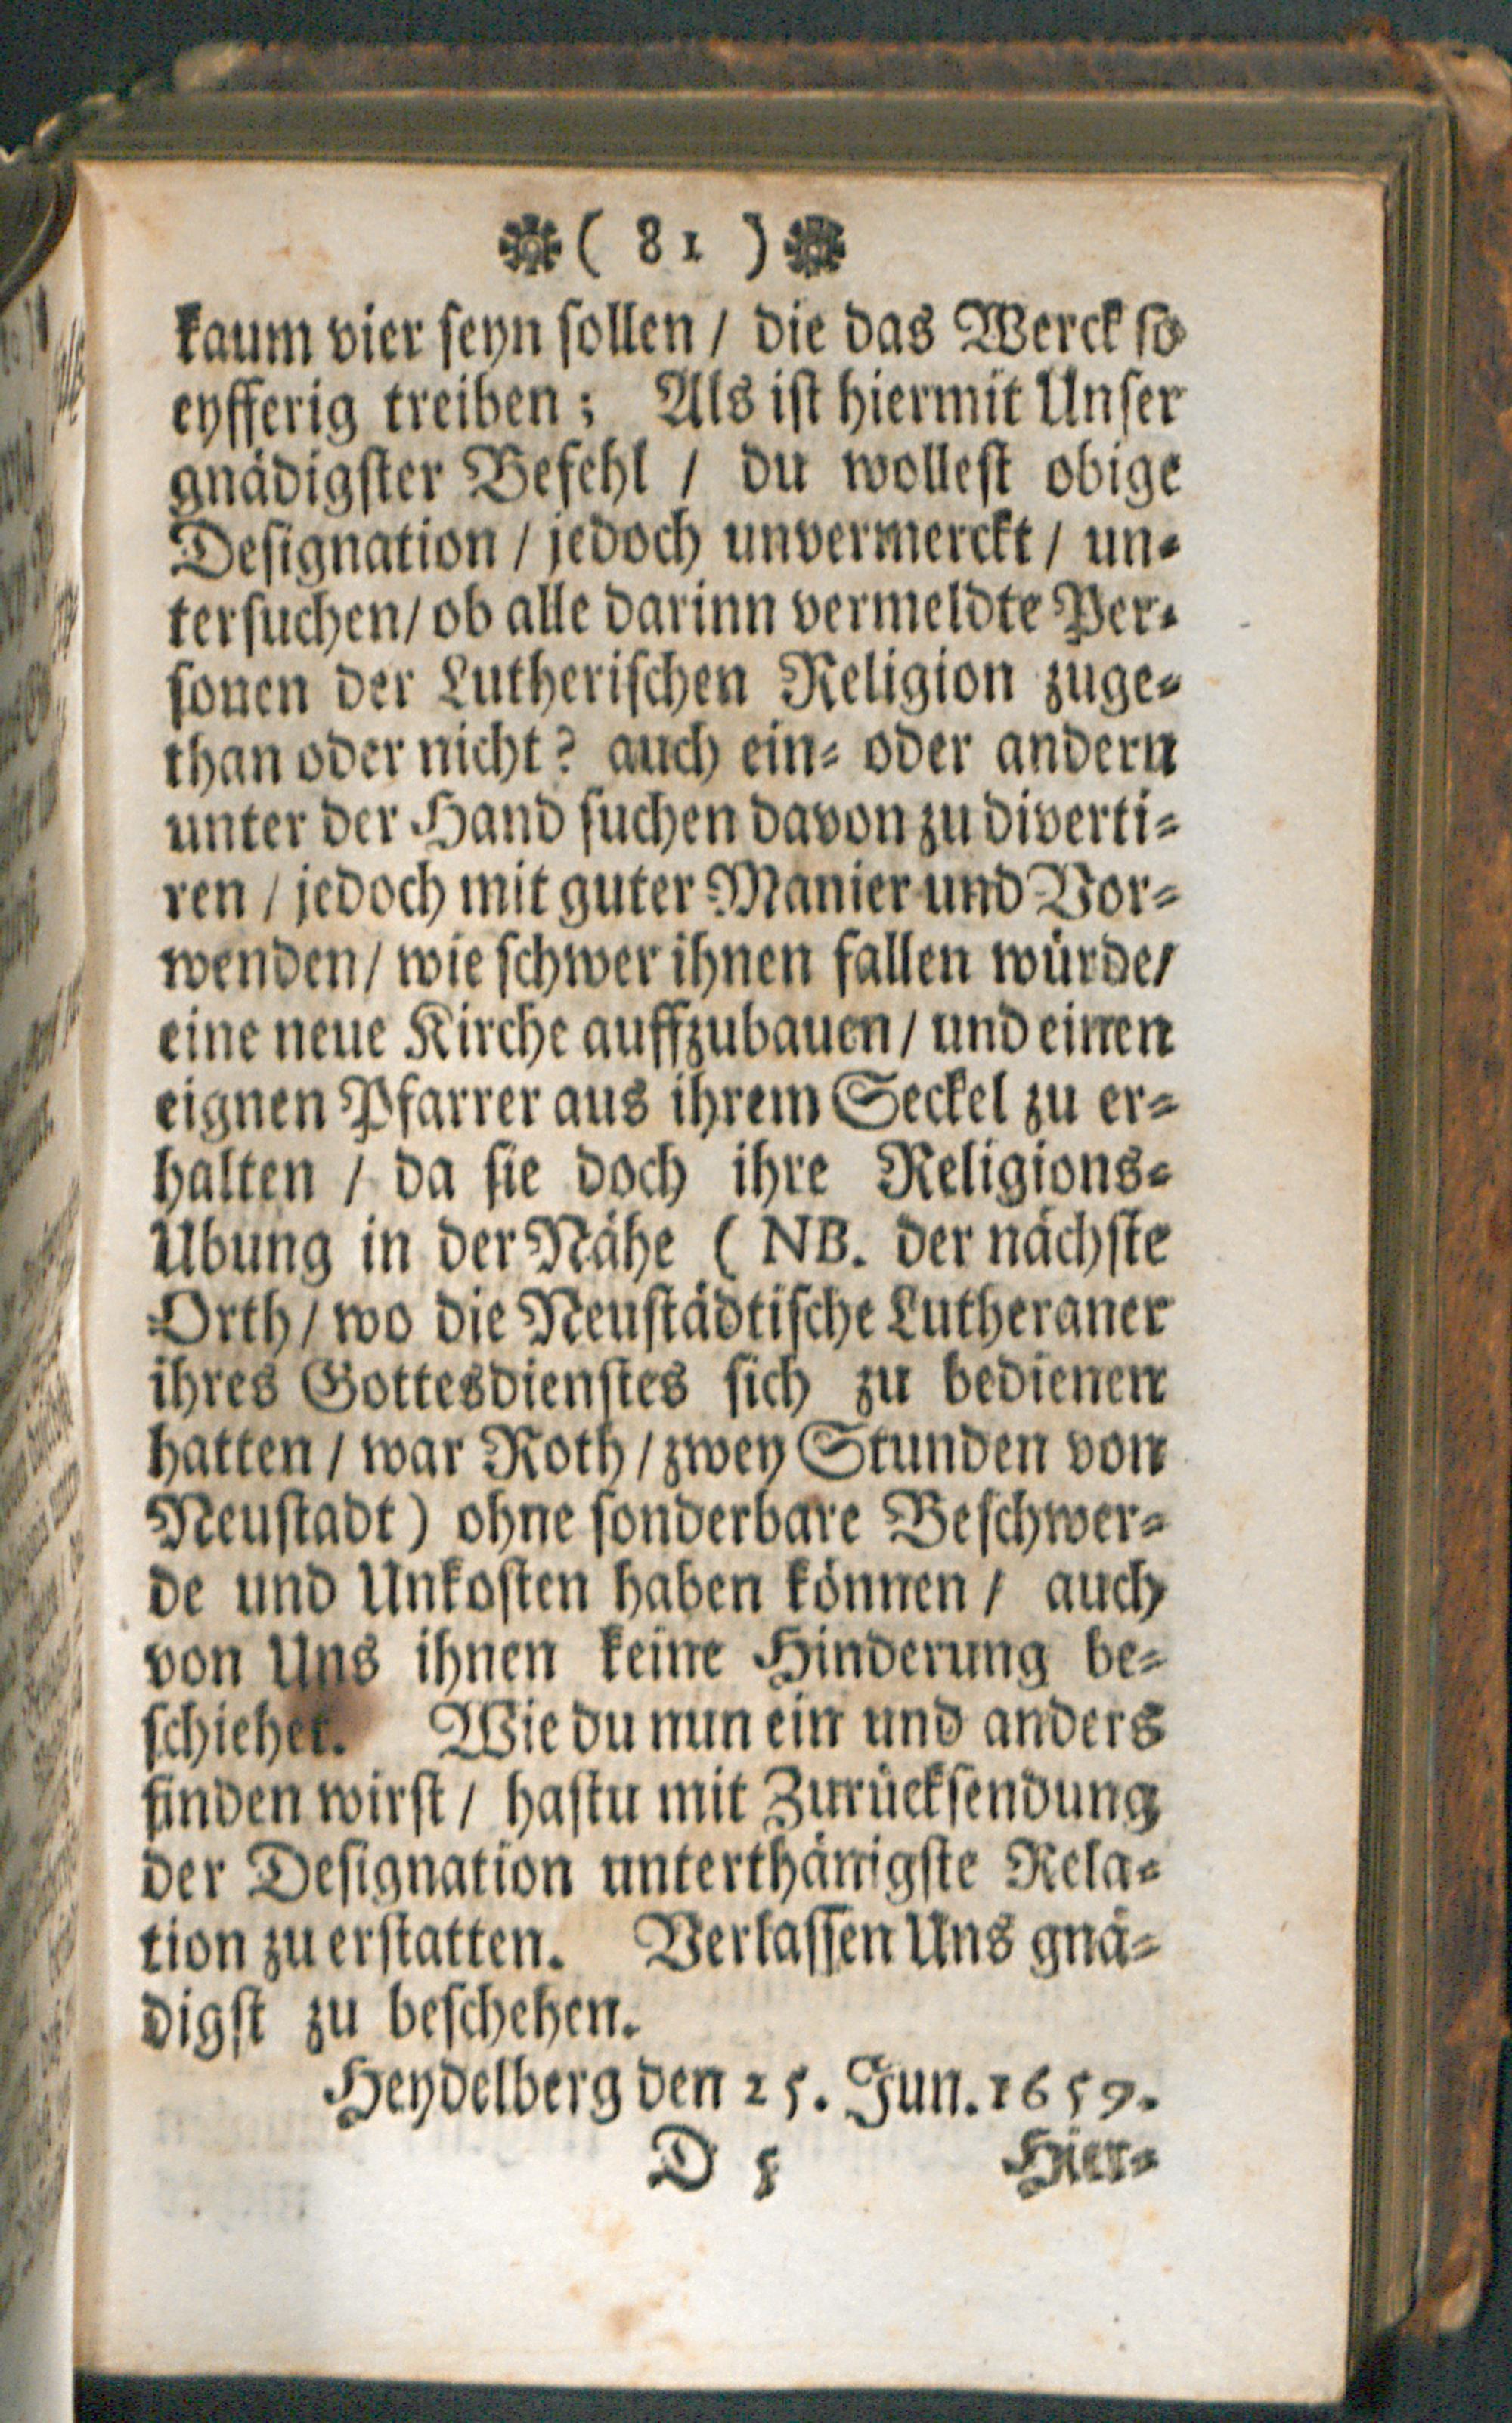 ( 81 )
kaum vier seyn sollen / die das Werck so
eyfferig treiben; Als ist hiermit Unser
gnädigster Befehl / du wollest obige
Designation / jedoch unvermerckt / un-
tersuchen / ob alle darinn vermeldte Per-
sonen der Lutherischen Religion zuge-
than oder nicht? auch ein- oder andern
unter der Hand suchen davon zu diverti-
ren / jedoch mit guter Manier und Vor-
wenden / wie schwer ihnen fallen würde /
eine neue Kirche auffzubauen / und einen
eignen Pfarrer aus ihrem Seckel zu er-
halten / da sie doch ihre Religions-
Ubung in der Nähe ( NB. der nächste
Orth / wo die Neustädtische Lutheraner
ihres Gottesdienstes sich zu bedienen
hatten / war Roth / zwey Stunden von
Neustadt) ohne sonderbare Beschwer-
de und Unkosten haben können / auch
von Uns ihnen keine Hinderung be-
schiehet. Wie du nun ein und anders
finden wirst / hastu mit Zurücksendung
der Designation unterthänigste Rela-
tion zu erstatten. Verlassen Uns gnä-
digst zu beschehen.
Heydelberg den 25. Jun. 1659.
D 5 Hier-